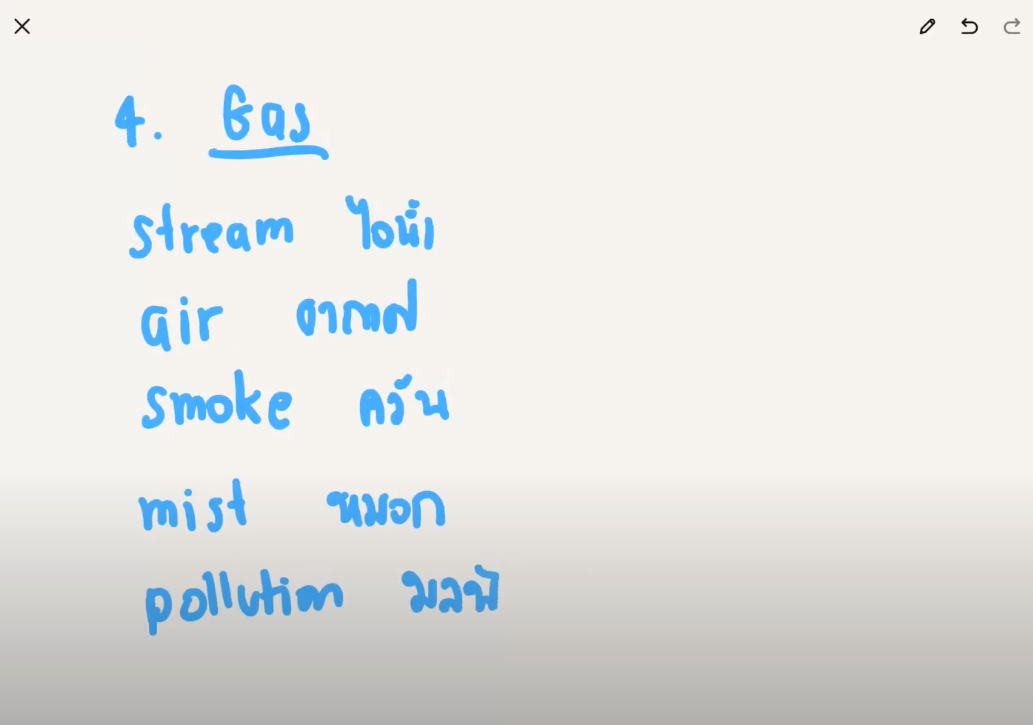 4. Gas
stream ไอน้ำ
air อากาศ
smoke ควัน
mist หมอก
pollution มลพิ